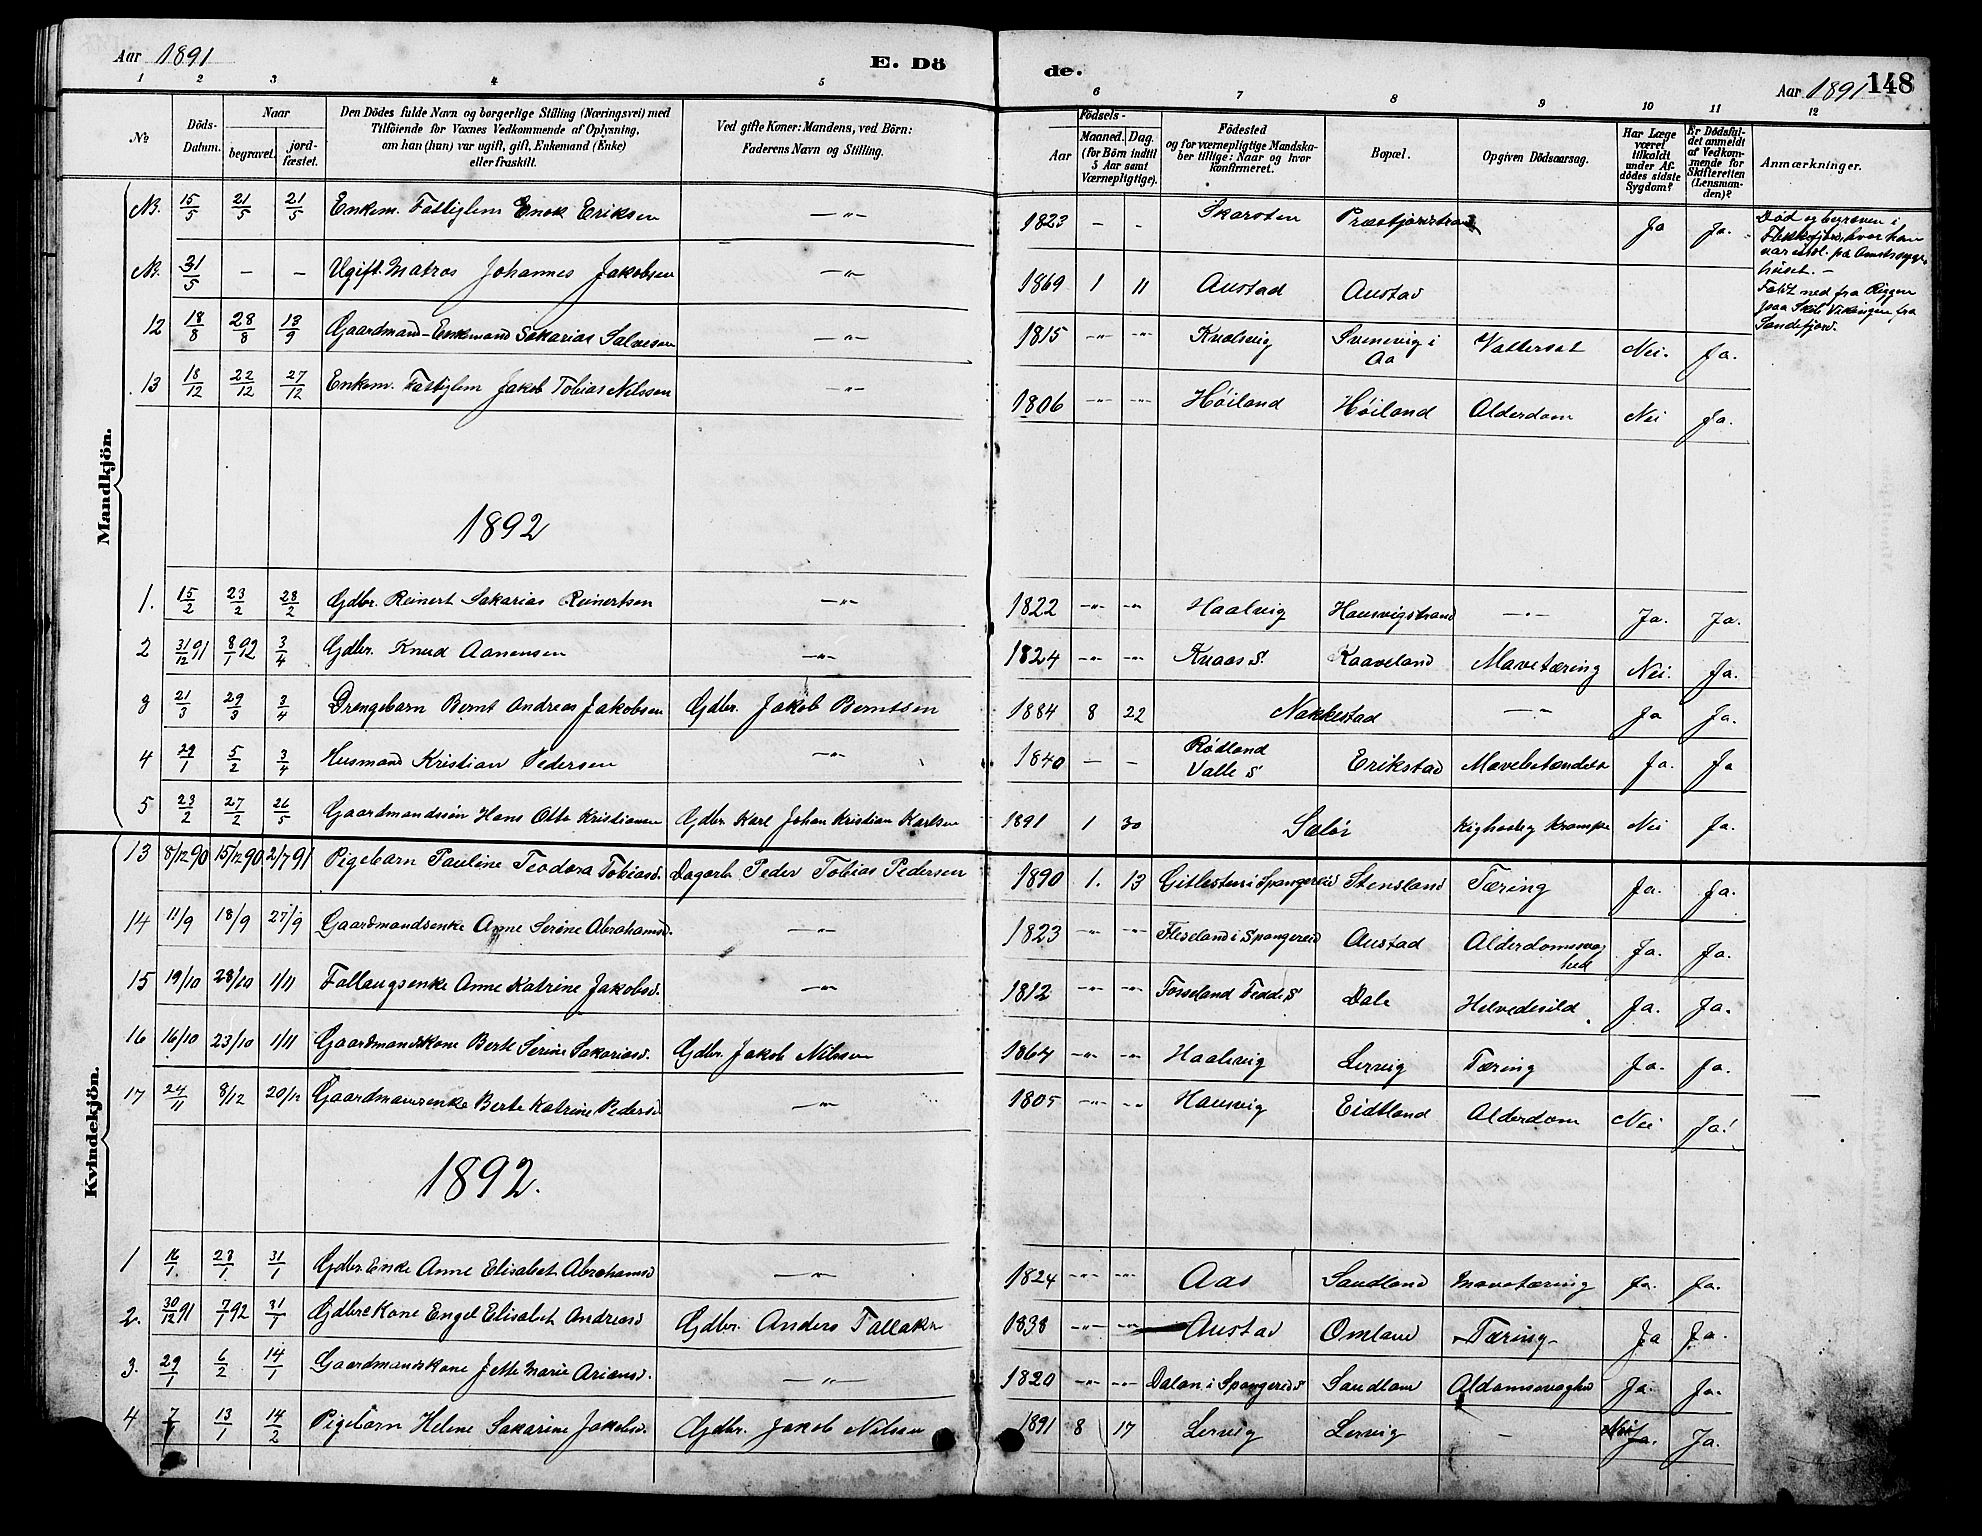 Aar 1891 E. Dö de. Aar 1891 148
1 2 3 4 5 6 7 8 9 10 11 12
No Döds-Datum. Naar begravet. jord-fæstet. Den Dödes fulde Navn og borgerlige Stilling (Næringsvei) med Tilföiende for Voxnes Vedkommende af Oplysning, om han (hun) var ugift, gift, Enkemand (Enke) eller fraskilt. Ved gifte Koner: Mandens, ved Börn: Faderens Navn og Stilling. Födsels- Aar Maaned. Dag. (for Börn indtil 5 Aar samt Værnepligtige). Födested og for værnepligtige Mandska-ber tillige: Naar og hvor konfirmeret. Bopæl. Opgiven Dödsaarsag. Har Læge været tilkaldt under Af-dödes sidste Sygdom? Er Dödsfal-det anmeldt af Vedkom-mende for Skifteretten (Lensman-den)? Anmærkninger.
Mandkjön.
N. 15/5 21/5 21/5 Enkem. Fattiglem Enok Eriksen —"— 1823 - - Skarsten Ja Ja. Död og begraven i Flekkefjord, hvor han
N. 31/5 — — Ugift. Matros Johannes Jakobsen —"— 1869 1 11 Austad Austad Faldt ned fra Riggen paa Skib Vikingen fra Sandefjord.
12 18/8 28/8 13/9 Gaardmand-Enkemand Sakarias Salvesen —"— 1815 —"— —"— Svenevig i Aa Vattersot Nei. Ja.
13 18/12 22/12 27/12 Enkem. Fattiglem Jakob Tobias Nilssen —"— 1806 —"— —"— Höiland Höiland Alderdom Nei Ja.
1892
1. 15/2 23/2 28/2 Gdbr. Reinert Sakarias Reinertsen —"— 1822 —"— —"— Haalvig Hausvigstrand —"— Ja. Ja.
2 31/12 91 8/1 92 3/4 Gdbr. Knud Aanensen —"— 1824 —"— —"— Kvaas S. Kaaveland Mavetæring Nei. Ja.
3 21/3 29/3 3/4 Drengebarn Bernt Andreas Jakobsen Gdbr. Jakob Berntsen 1884 8 22 Nakkestad —"— Ja Ja.
4 29/1 5/2 3/4 Husmand Kristian Pedersen —"— 1840 — — Rödland Valle S Erikstad Mavebetændelse Ja. Ja
5 23/2 27/2 26/5 Gaardmandssön Hans Otto Kristiansen Gdbr. Karl Johan Kristian Karlsen 1891 1 30 Salör Kighoste, Krampe Nei Ja.
Kvindekjön.
13 8/12 90 15/12 90 2/7 91 Pigebarn Pauline Teodora Tobiasd. Dagarb. Peder Tobias Pedersen 1890 1. 13 Gitlesten i Spangereid Stensland Tæring Ja. Ja.
14 11/9 18/9 27/9 Gaardmandsenke Anne Serine Abrahamsd. —"— 1823 —"— —"— Fliseland i Spangereid Austad Alderdomssvaghed Ja. Ja.
15 19/10 28/10 1/11 Anne Katrine Jakobsd. —"— 1812 —"— —"— Fosseland Fedde S Dale Helvedesild Ja. Ja.
16 16/10 23/10 1/11 Gaardmandskone Berte Serine Sakariasd. Gdbr. Jakob Nilssen 1864 —"— —"— Haalvig Lervig Tæring Ja. Ja.
17 24/11 8/12 20/12 Gaardmandsenke Berte Katrine Pedersd —"— 1805 —"— —"— Hausvig Eidtland Alderdom Nei Ja!
1892.
1 16/1 23/1 31/1 Gdbr. Enke Anne Elisabet Abrahamsd —"— 1824 —"— —"— Aas Sandland Mavetæring Ja. Ja.
2. 30/12 91 7/1 92 31/1 Gdbr. Kone Engel Elisabet Andreasd Gdbr. Anders Tallaks. 1838 —"— —"— Austad Omland Tæring Ja Ja.
3. 29/1 6/2 14/1 Gaardmandskone Jette Marie Ariansd. —"— 1820 —"— —"— Dalan i Spangereid S Sandland Ja. Ja.
4 7/1 13/1 14/2 Pigebarn Helene Sakarine Jakobsd. Gdbr. Jakob Nilsen 1891 8 17 Lervig Lervig — Ja. Ja.